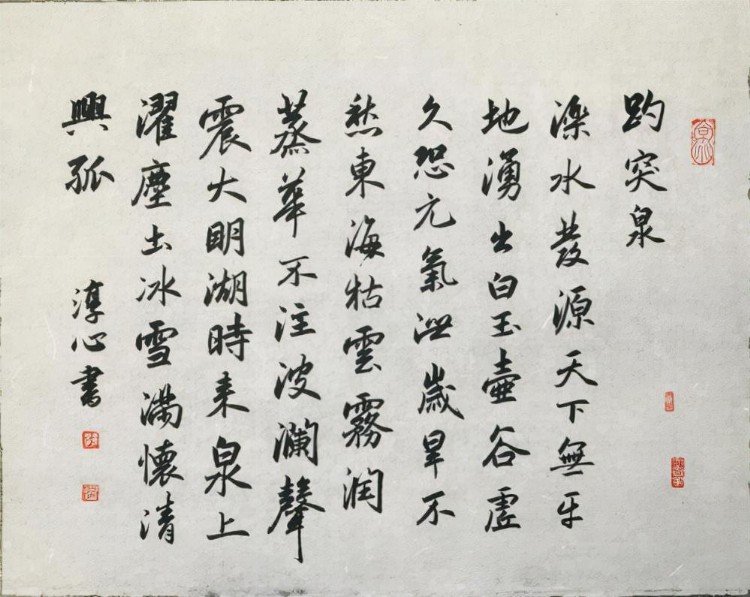 趵突泉
濼水發源天下無平
地湧出白玉壺谷虛
久恐元氣泄歲旱不
愁東海枯雲霧潤
蒸華不注波瀾聲
震大明湖時来泉上
濯塵土冰雪滿懷清
興孤
淳心書